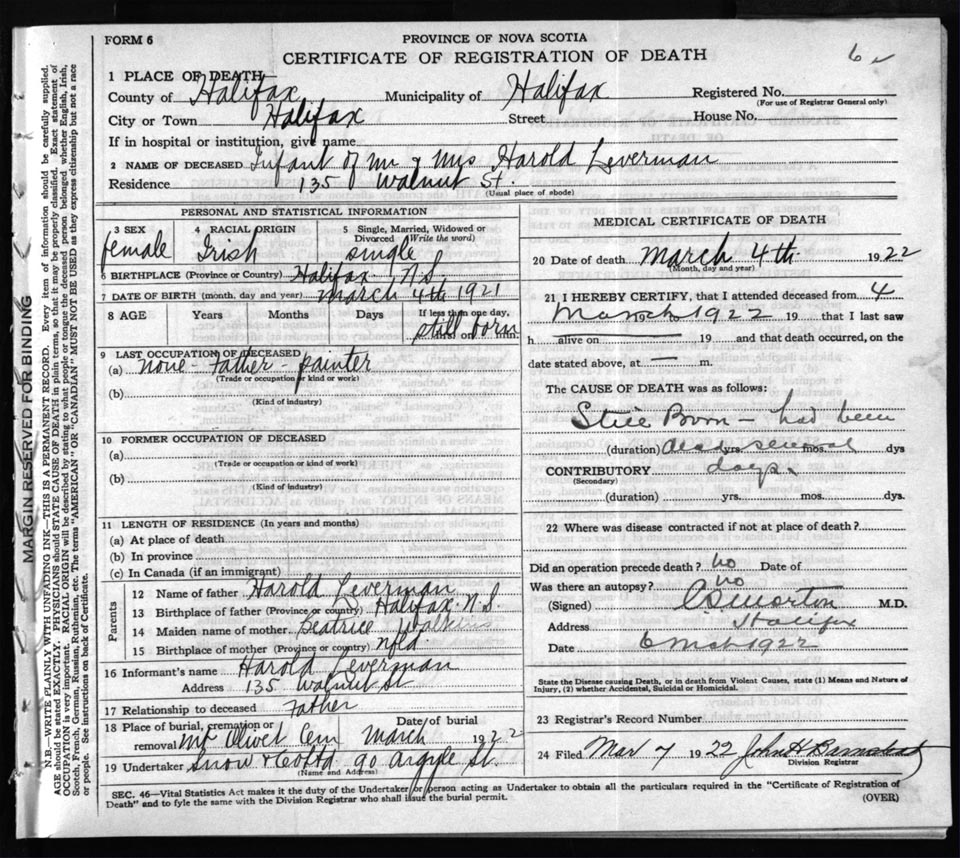 FORM 6
PROVINCE OF NOVA SCOTIA
CERTIFICATE OF REGISTRATION OF DEATH
6
1 PLACE OF DEATH
County of Halifax Municipality of Halifax Registered No.
(For use of Registrar General only)
City or Town Halifax Street House No.
If in hospital or institution, give name
2 NAME OF DECEASED Infant of Mr & Mrs Harold Leverman
Residence 135 Walnut St.
(Usual place of abode)
PERSONAL AND STATISTICAL INFORMATION
3 SEX 4 RACIAL ORIGIN 5 Single, Married, Widowed or Divorced (Write the word)
female Irish single
6 BIRTHPLACE (Province or Country) Halifax N.S.
7 DATE OF BIRTH (month, day and year) March 4th 1921
8 AGE Years Months Days If less than one day,
still born
hrs. or min.
9 LAST OCCUPATION OF DECEASED
(a) none - Father - painter
(Trade or occupation or kind or work)
(b)
(Kind of industry)
10 FORMER OCCUPATION OF DECEASED
(a)
(Trade or occupation or kind or work)
(b)
(Kind of industry)
11 LENGTH OF RESIDENCE (In years and months)
(a) At place of death
(b) In province
(c) In Canada (if an immigrant)
Parents
12 Name of father Harold Leverman
13 Birthplace of father (Province or country) Halifax N.S.
14 Maiden name of mother Beatrice
15 Birthplace of mother (Province or country) Nfld.
16 Informant's name Harold Leverman
Address 135 Walnut St
17 Relationship to deceased Father
18 Place of burial, cremation or removal Mt Olivet Cem Date of burial March 1922
19 Undertaker Snow & Co Ltd 90 Argyle St.
(Name and Address)
MEDICAL CERTIFICATE OF DEATH
20 Date of death March 4th 1922
(Month, day and year)
21 I HEREBY CERTIFY, that I attended deceased from 4
March 1922 19 that I last saw
h alive on 19 and that death occurred, on the
date stated above, at — m.
The CAUSE OF DEATH was as follows:
Still Born - had been
(duration) dead several yrs. mos. dys
CONTRIBUTORY days.
(Secondary)
(duration) yrs. mos. dys.
22 Where was disease contracted if not at place of death?
Did an operation precede death? no Date of
Was there an autopsy? no
(Signed) Morton M.D.
Address Halifax
Date 6 Mch 1922
State the Disease causing Death, or in death from Violent Causes, state (1) Means and Nature of
Injury, (2) whether Accidental, Suicidal or Homicidal.
23 Registrar's Record Number
24 Filed Mar 7 1922 John H Barnstead
Division Registrar
SEC. 46—Vital Statistics Act makes it the duty of the Undertaker or person acting as Undertaker to obtain all the particulars required in the "Certificate of Registration of
Death" and to fyle the same with the Division Registrar who shall issue the burial permit.
(OVER)
MARGIN RESERVED FOR BINDING
N.B.—WRITE PLAINLY WITH UNFADING INK—THIS IS A PERMANENT RECORD. Every item of information should be carefully supplied.
AGE should be stated EXACTLY. PHYSICIANS should STATE CAUSE OF DEATH in plain terms, so that it may be properly classified. Exact statement of
OCCUPATION is very important. RACIAL ORIGIN will be described by stating to what people or tongue the deceased person belonged whether English, Irish,
Scotch, French, German, Russian, Ruthenian, etc. The terms "AMERICAN" or "CANADIAN" MUST NOT BE USED as they express citizenship but not a race
or people. See instructions on back of Certificate.